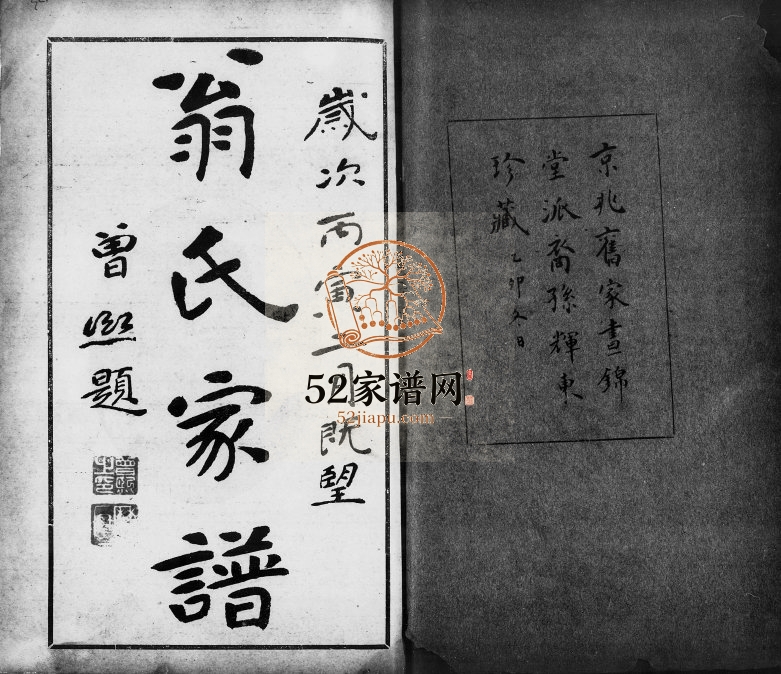 京兆舊家晝錦
堂派裔孫輝東
珍藏 乙卯冬日
歲次丙寅 月既望
翁氏家譜
曾熙題
52家谱网
52jiapu.com